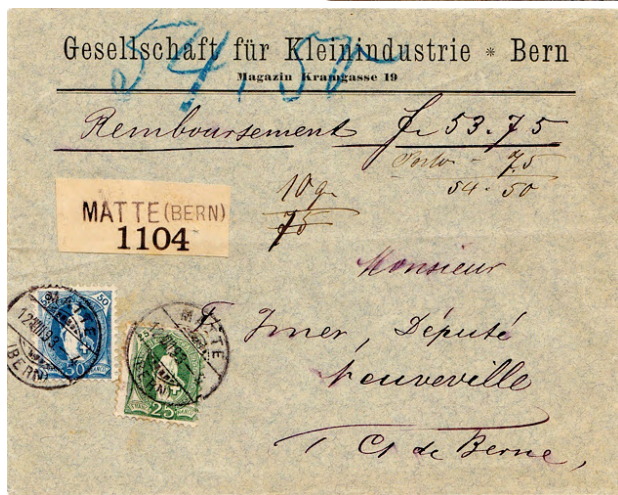 Gesellschaft für Kleinindustrie * Bern
54,50
Magazin Kramgasse 19
Remboursement fr 53.75
Porto - 75
54-50
10 gr
75
MATTE (BERN)
1104
Monsieur
Imer, Député
Neuveville
Ct de Berne,
50
MATTE
(BERN)
50
25
MATTE
(BERN)
25